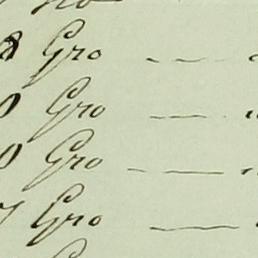 8 Gro
0 Gro
0 Gro
7 Gro